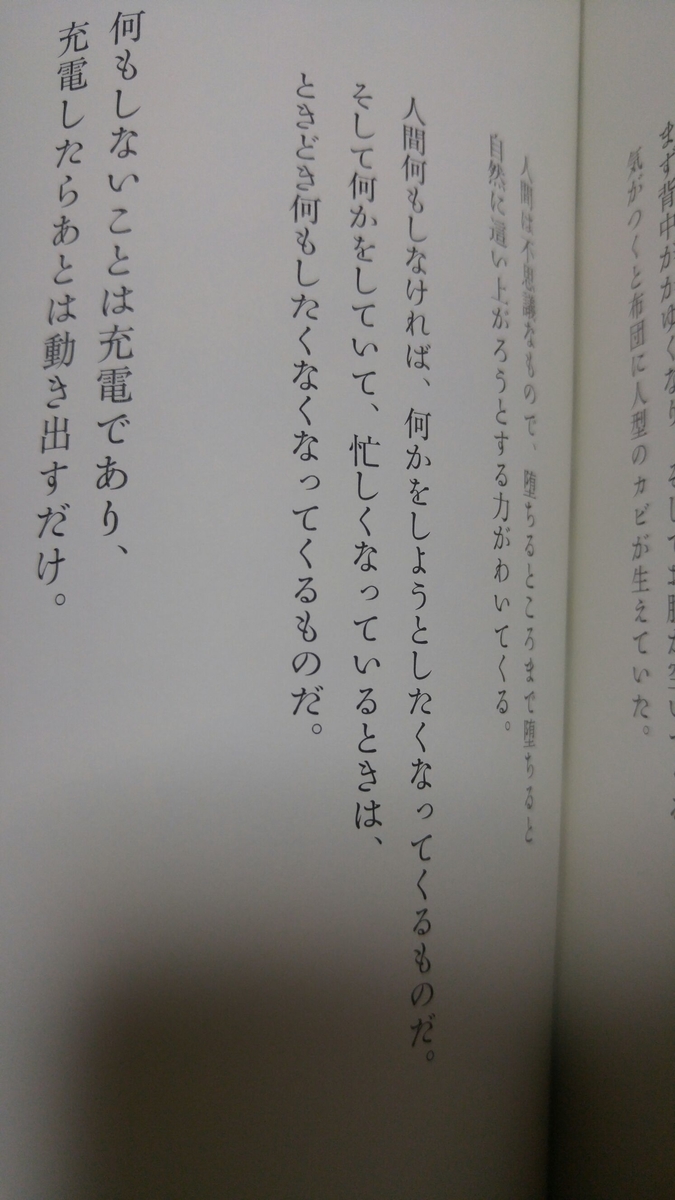 まず背中がかゆくなり、そしてお腹が空いて
気がつくと布団に人型のカビが生えていた。
人間は不思議なもので、堕ちるところまで堕ちると
自然に這い上がろうとする力がわいてくる。
人間何もしなければ、何かをしようとしたくなってくるものだ。
そして何かをしていて、忙しくなっているときは、
ときどき何もしたくなくなってくるものだ。
何もしないことは充電であり、
充電したらあとは動き出すだけ。